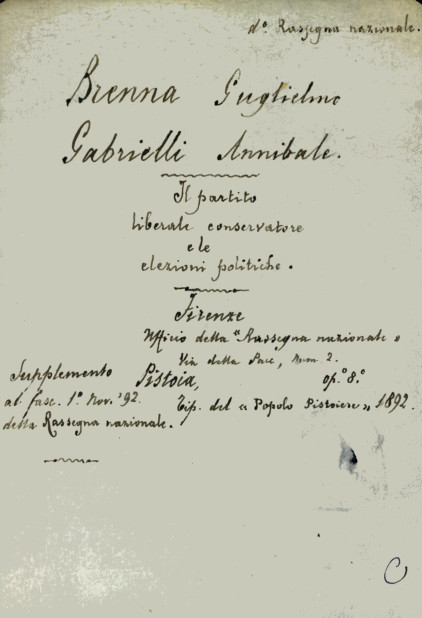 dº Rassegna nazionale.
Brenna Guglielmo
Gabrielli Annibale.
Il partito
liberale conservatore
e le
elezioni politiche.
Firenze
Ufficio della "Rassegna nazionale"
Via della Pace, Num. 2.
Supplemento
al fasc. 1º Nov. '92.
della Rassegna nazionale.
Pistoia, op. 8.º
Tip. del « Popolo Pistoiese », 1892.
C